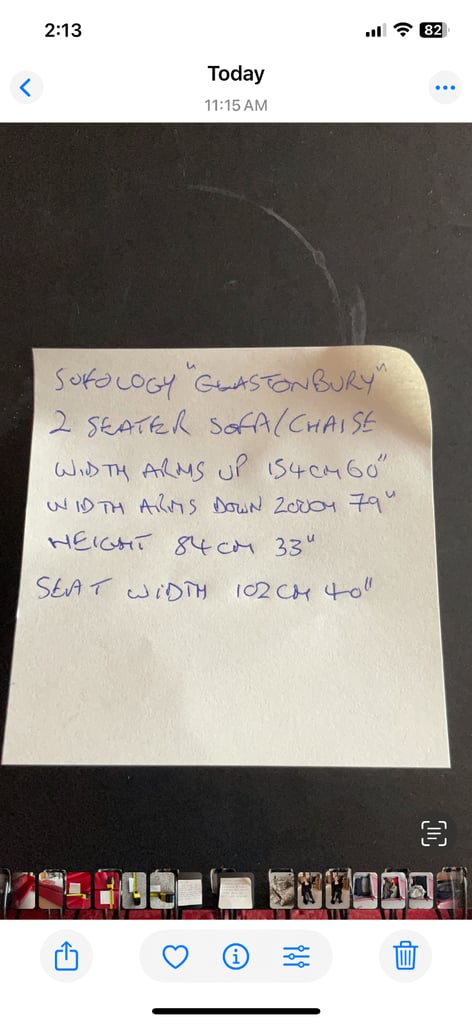 2:13
82
Today
11:15 AM
SOFOLOGY "GLASTONBURY"
2 SEATER SOFA/CHAISE
WIDTH ARMS UP 154CM 60"
WIDTH ARMS DOWN 200CM 79"
HEIGHT 84CM 33"
SEAT WIDTH 102CM 40"